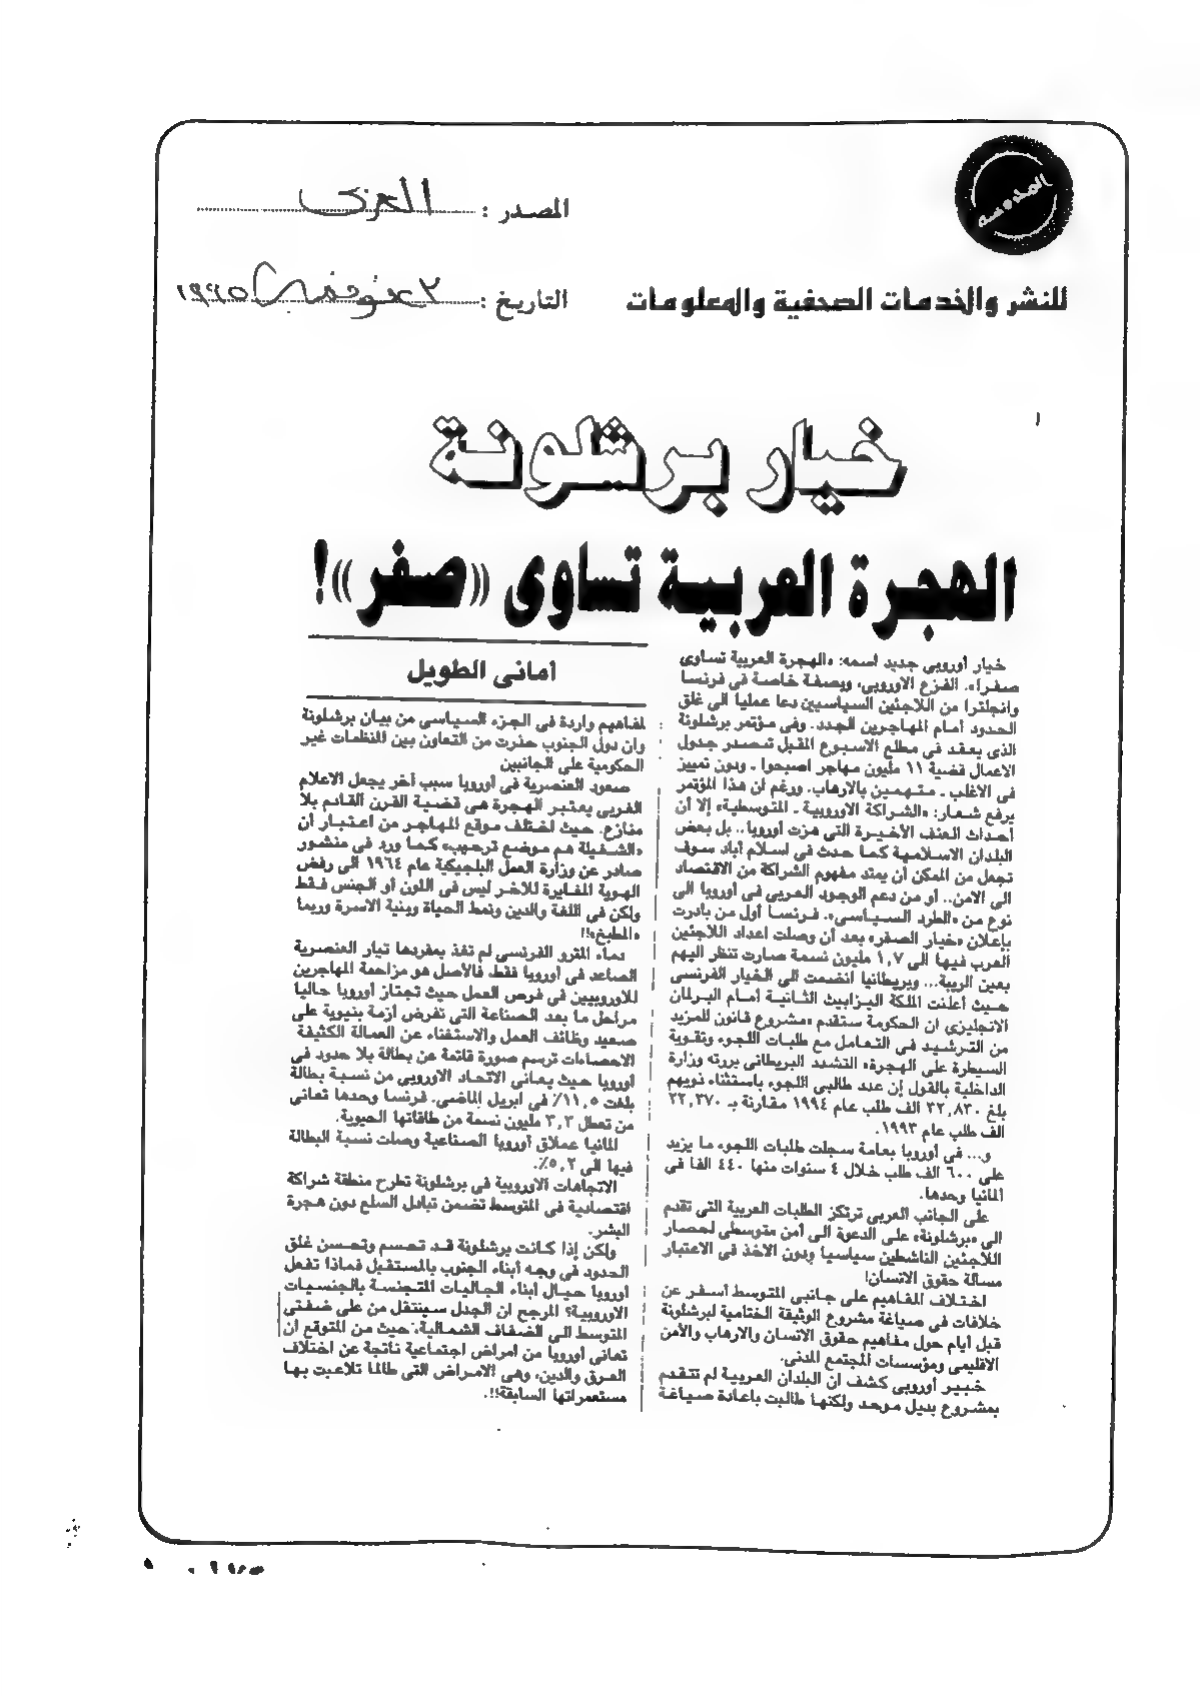 المدوسه
المصدر : العربى
للنشر والخدمات الصحفية والمعلومات
التاريخ : نوفمبر ١٩٩٥
خيار برشلونة
الهجرة العربية تساوى «صفر»!
أمانى الطويل
خيار أوروبى جديد اسمه: «الهجرة العربية تساوى
صفرا». الفزع الأوروبى، وبصفة خاصة فى فرنسا
وانجلترا من اللاجئين السياسيين دعا عمليا الى غلق
الحدود أمام المهاجرين الجدد. وفى مؤتمر برشلونة
الذى يعقد فى مطلع الاسبوع المقبل تتصدر جدول
الاعمال قضية ١١ مليون مهاجر اصبحوا ـ ودون تمييز
فى الاغلب ـ متهمين بالارهاب. ورغم ان هذا المؤتمر
يرفع شعار: «الشراكة الاوروبية ـ المتوسطية» إلا أن
أحداث العنف الأخيرة التى هزت أوروبا.. بل بعض
البلدان الاسلامية كما حدث فى اسلام آباد سوف
تجعل من الممكن أن يمتد مفهوم الشراكة من الاقتصاد
الى الامن.. أو من دعم الوجود العربى فى أوروبا الى
نوع من «الطرد السياسى». فرنسا أول من بادرت
بإعلان «خيار الصفر» بعد أن وصلت اعداد اللاجئين
العرب فيها الى ١,٧ مليون نسمة صارت تنظر اليهم
بعين الريبة... وبريطانيا انضمت الى الخيار الفرنسى
حيث أعلنت الملكة اليزابيث الثانية أمام البرلمان
الانجليزى ان الحكومة ستقدم «مشروع قانون للمزيد
من الترشيد فى التعامل مع طلبات اللجوء وتقوية
السيطرة على الهجرة» التشدد البريطانى بررته وزارة
الداخلية بالقول إن عدد طالبى اللجوء باستثناء ذويهم
بلغ ٣٢,٨٣٠ الف طلب عام ١٩٩٤ مقارنة بـ ٢٢,٣٧٠
الف طلب عام ١٩٩٣.
و... فى أوروبا بعامة سجلت طلبات اللجوء ما يزيد
على ٦٠٠ الف طلب خلال ٤ سنوات منها ٤٤٠ الفا فى
ألمانيا وحدها.
على الجانب العربى ترتكز الطلبات العربية التى تقدم
الى «برشلونة» على الدعوة الى أمن متوسطى لحصار
اللاجئين الناشطين سياسيا ودون الاخذ فى الاعتبار
مسألة حقوق الانسان!
اختلاف المفاهيم على جانبى المتوسط أسفر عن
خلافات فى صياغة مشروع الوثيقة الختامية لبرشلونة
قبل أيام حول مفاهيم حقوق الانسان والارهاب والأمن
الاقليمى ومؤسسات المجتمع المدنى.
خبير أوروبى كشف ان البلدان العربية لم تتقدم
بمشروع بديل موحد ولكنها طالبت باعادة صياغة
لمفاهيم واردة فى الجزء السياسى من بيان برشلونة
وان دول الجنوب حذرت من التعاون بين المنظمات غير
الحكومية على الجانبين
صعود العنصرية فى أوروبا سبب آخر يجعل الاعلام
الغربى يعتبر الهجرة هى قضية القرن القادم بلا
منازع. حيث اختلف موقع المهاجر من اعتبار أن
«الشغيلة هم موضع ترحيب» كما ورد فى منشور
صادر عن وزارة العمل البلجيكية عام ١٩٦٤ الى رفض
الهوية المغايرة للآخر ليس فى اللون أو الجنس فقط
ولكن فى اللغة والدين ونمط الحياة وبنية الاسرة وربما
«المطبخ»!!
دماء المترو الفرنسى لم تغذ بمفردها تيار العنصرية
الصاعد فى أوروبا فقط، فالأصل هو مزاحمة المهاجرين
للأوروبيين فى فرص العمل حيث تجتاز أوروبا حاليا
مراحل ما بعد الصناعة التى تفرض أزمة بنيوية على
صعيد وظائف العمل والاستغناء عن العمالة الكثيفة
الاحصاءات ترسم صورة قاتمة عن بطالة بلا حدود فى
أوروبا حيث يعانى الاتحاد الاوروبى من نسبة بطالة
بلغت ١١,٥٪ فى ابريل الماضى. فرنسا وحدها تعانى
من تعطل ٣,٣ مليون نسمة من طاقاتها الحيوية.
المانيا عملاق أوروبا الصناعية وصلت نسبة البطالة
فيها الى ٥,٢٪.
الاتجاهات الاوروبية فى برشلونة تطرح منطقة شراكة
اقتصادية فى المتوسط تضمن تبادل السلع دون هجرة
البشر.
ولكن إذا كانت برشلونة قد تحسم وتحسن غلق
الحدود فى وجه أبناء الجنوب بالمستقبل فماذا تفعل
أوروبا حيال أبناء الجاليات المتجنسة بالجنسيات
الاوروبية؟ المرجح ان الجدل سينتقل من على ضفتى
المتوسط الى الضفاف الشمالية، حيث من المتوقع ان
تعانى أوروبا من امراض اجتماعية ناتجة عن اختلاف
العرق والدين، وهى الامراض التى طالما تلاعبت بها
مستعمراتها السابقة!!.